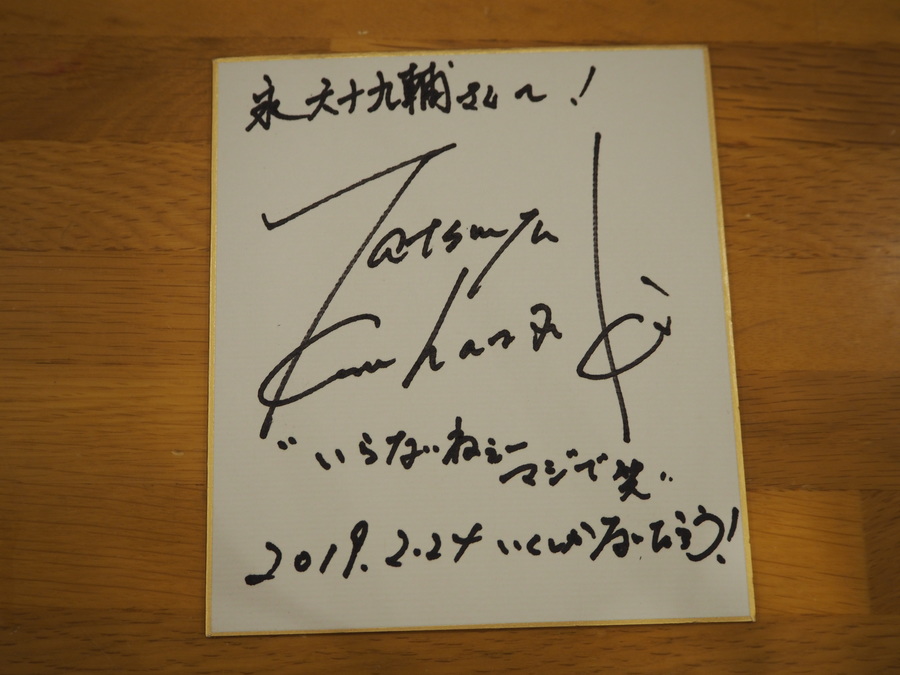 永天十九輔さんへ!
Tatsuya
Kanzaki
"いらないねぇー
マジで笑"
2019.2.24 いくしかないだろう!